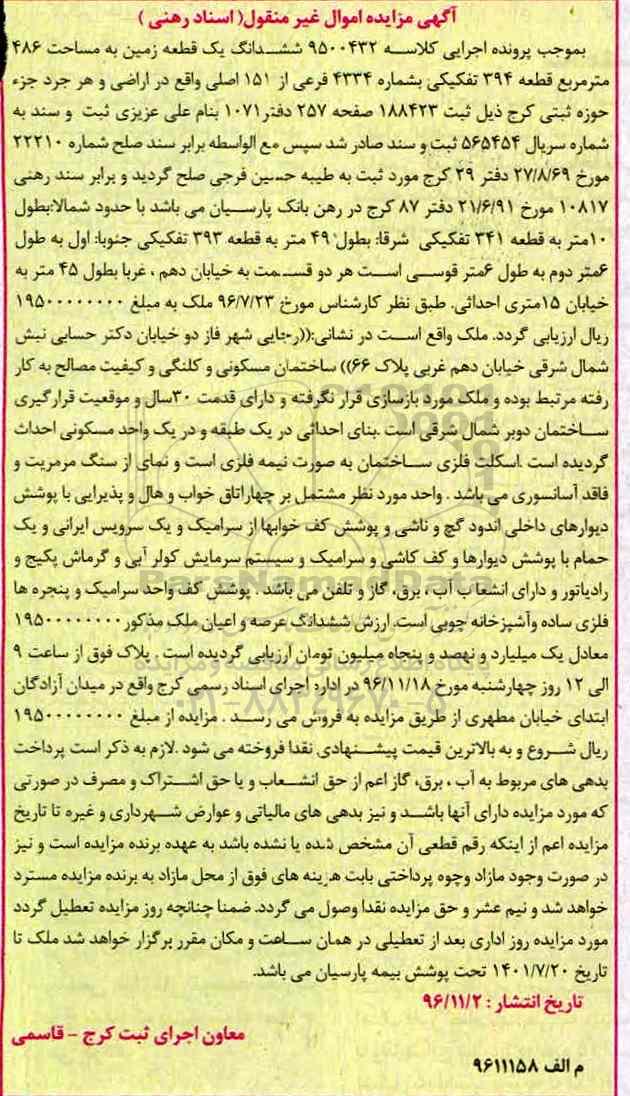 آگهی مزایده اموال غیر منقول( اسناد رهنی )
بموجب پرونده اجرایی کلاسه ۹۵۰۰۴۳۲ ششدانگ یک قطعه زمین به مساحت ۴۸۶
مترمربع قطعه ۳۹۴ تفکیکی بشماره ۴۳۳۴ فرعی از ۱۵۱ اصلی واقع در اراضی و هر جرد جزء
حوزه ثبتی کرج ذیل ثبت ۱۸۸۴۲۳ صفحه ۲۵۷ دفتر۱۰۷۱ بنام علی عزیزی ثبت و سند به
شماره سریال ۵۶۵۴۵۴ ثبت و سند صادر شد سپس مع الواسطه برابر سند صلح شماره ۲۲۲۱۰
مورخ ۲۷/۸/۶۹ دفتر ۲۹ کرج مورد ثبت به طیبه حسین فرجی صلح گردید و برابر سند رهنی
۱۰۸۱۷ مورخ ۲۱/۶/۹۱ دفتر ۸۷ کرج در رهن بانک پارسیان می باشد با حدود شمالا:بطول
۱۰متر به قطعه ۳۴۱ تفکیکی شرقا: بطول ۴۹ متر به قطعه ۳۹۳ تفکیکی جنوبا: اول به طول
۶متر دوم به طول ۶متر قوسی است هر دو قسمت به خیابان دهم ، غربا بطول ۴۵ متر به
خیابان ۱۵متری احداثی. طبق نظر کارشناس مورخ ۹۶/۷/۲۳ ملک به مبلغ ۱۹۵۰۰۰۰۰۰۰۰
ریال ارزیابی گردد. ملک واقع است در نشانی:((رجایی شهر فاز دو خیابان دکتر حسابی نبش
شمال شرقی خیابان دهم غربی پلاک ۶۶)) ساختمان مسکونی و کلنگی و کیفیت مصالح به کار
رفته مرتبط بوده و ملک مورد بازسازی قرار نگرفته و دارای قدمت ۳۰سال و موقعیت قرارگیری
ساختمان دوبر شمال شرقی است .بنای احداثی در یک طبقه و در یک واحد مسکونی احداث
گردیده است .اسکلت فلزی ساختمان به صورت نیمه فلزی است و نمای از سنگ مرمریت و
فاقد آسانسوری می باشد . واحد مورد نظر مشتمل بر چهاراتاق خواب و هال و پذیرایی با پوشش
دیوارهای داخلی اندود گچ و ناشی و پوشش کف خوابها از سرامیک و یک سرویس ایرانی و یک
حمام با پوشش دیوارها و کف کاشی و سرامیک و سیستم سرمایش کولر آبی و گرماش پکیج و
رادیاتور و دارای انشعاب آب ، برق، گاز و تلفن می باشد . پوشش کف واحد سرامیک و پنجره ها
فلزی ساده وآشپزخانه چوبی است. ارزش ششدانگ عرصه و اعیان ملک مذکور۱۹۵۰۰۰۰۰۰۰۰
معادل یک میلیارد و نهصد و پنجاه میلیون تومان ارزیابی گردیده است . پلاک فوق از ساعت ۹
الی ۱۲ روز چهارشنبه مورخ ۹۶/۱۱/۱۸ در اداره اجرای اسناد رسمی کرج واقع در میدان آزادگان
ابتدای خیابان مطهری از طریق مزایده به فروش می رسد . مزایده از مبلغ ۱۹۵۰۰۰۰۰۰۰۰
ریال شروع و به بالاترین قیمت پیشنهادی نقدا فروخته می شود .لازم به ذکر است پرداخت
بدهی های مربوط به آب ، برق، گاز اعم از حق انشعاب و یا حق اشتراک و مصرف در صورتی
که مورد مزایده دارای آنها باشد و نیز بدهی های مالیاتی و عوارض شهرداری و غیره تا تاریخ
مزایده اعم از اینکه رقم قطعی آن مشخص شده یا نشده باشد به عهده برنده مزایده است و نیز
در صورت وجود مازاد وجوه پرداختی بابت هزینه های فوق از محل مازاد به برنده مزایده مسترد
خواهد شد و نیم عشر و حق مزایده نقدا وصول می گردد. ضمنا چنانچه روز مزایده تعطیل گردد
مورد مزایده روز اداری بعد از تعطیلی در همان ساعت و مکان مقرر برگزار خواهد شد ملک تا
تاریخ ۱۴۰۱/۷/۲۰ تحت پوشش بیمه پارسیان می باشد.
تاریخ انتشار : ۹۶/۱۱/۲
معاون اجرای ثبت کرج - قاسمی
م الف ۹۶۱۱۱۵۸